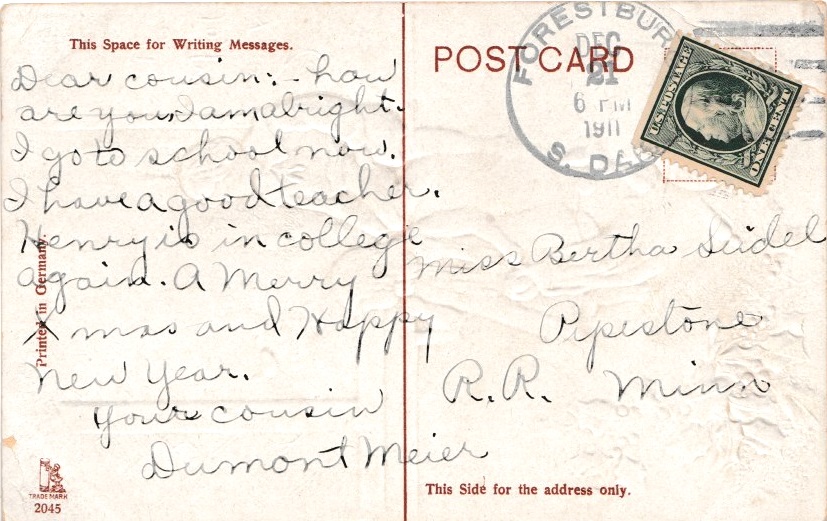 This Space for Writing Messages.
Dear cousin:- how
are you, I am alright.
I go to school now.
I have a good teacher.
Henry is in college
again. A Merry
Xmas and Happy
New Year.
Your cousin
Dumont Meier
Printed in Germany.
TRADE MARK
2045
POST CARD
FORESTBUR
DEC
21
6 PM
1911
S. DAK
U.S. POSTAGE
ONE CENT
Miss Bertha Seidel
Pipestone
R.R. Minn
This Side for the address only.